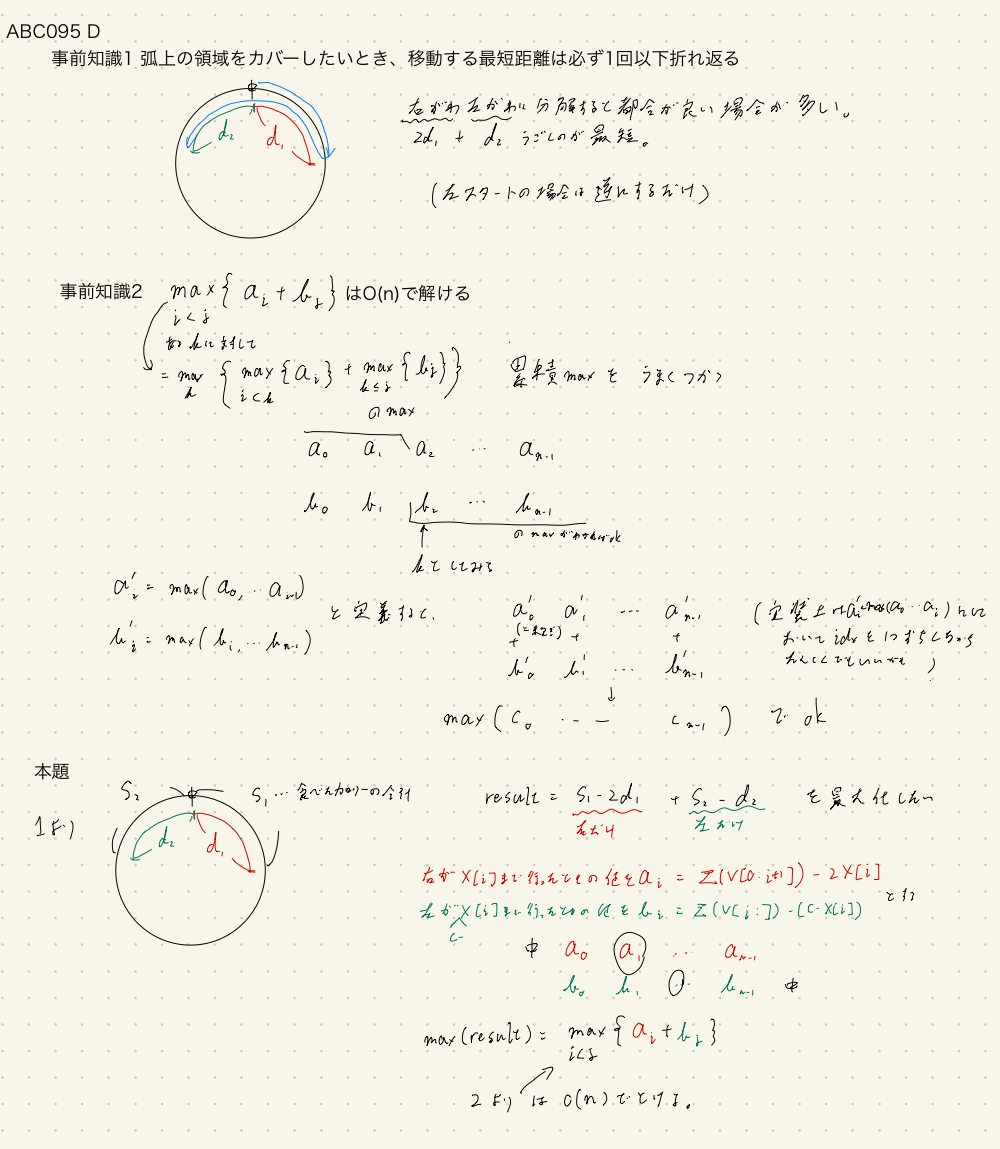 ABC095 D
事前知識1 弧上の領域をカバーしたいとき、移動する最短距離は必ず1回以下折れ返る
右がわ 左がわに分解すると都合が良い場合が多い。
d₂ d₁
2d₁ + d₂ うごくのが最短。
(左スタートの場合は逆にするだけ)
事前知識2 max{aᵢ + bⱼ} はO(n)で解ける
i<j
ある k に対して
= max { max{aᵢ} + max{bⱼ}}
k i<k k≤j
の max
累積 max を うまくつかう
a₀ a₁ a₂ ... aₙ₋₁
b₀ b₁ b₂ ... bₙ₋₁
の max がわかればok
kとしてみる
a'ᵢ = max(a₀, ... aᵢ₋₁)
b'ᵢ = max(bᵢ, ... bₙ₋₁)
と定義すると、
a'₀ a'₁ ... a'ₙ₋₁
+ + +
b'₀ b'₁ ... b'ₙ₋₁
↓
max(c₀ ... cₙ₋₁) で ok
本題
1より
S₂ S₁ … 食べたカロリーの合計
d₂ d₁
result = S₁-2d₁ + S₂-d₂ を最大化したい
右だけ 左だけ
右が X[i]まで行ったときの値を aᵢ = Σ(V[0:i+1]) - 2X[i]
左が X[i]まで行ったときの値を bᵢ = Σ(V[i:]) - (C-X[i])
C-
とする
φ a₀ a₁ ... aₙ₋₁
b₀ b₁ ... bₙ₋₁ φ
max(result) = max{aᵢ + bⱼ}
i<j
2より は O(n)でとける。